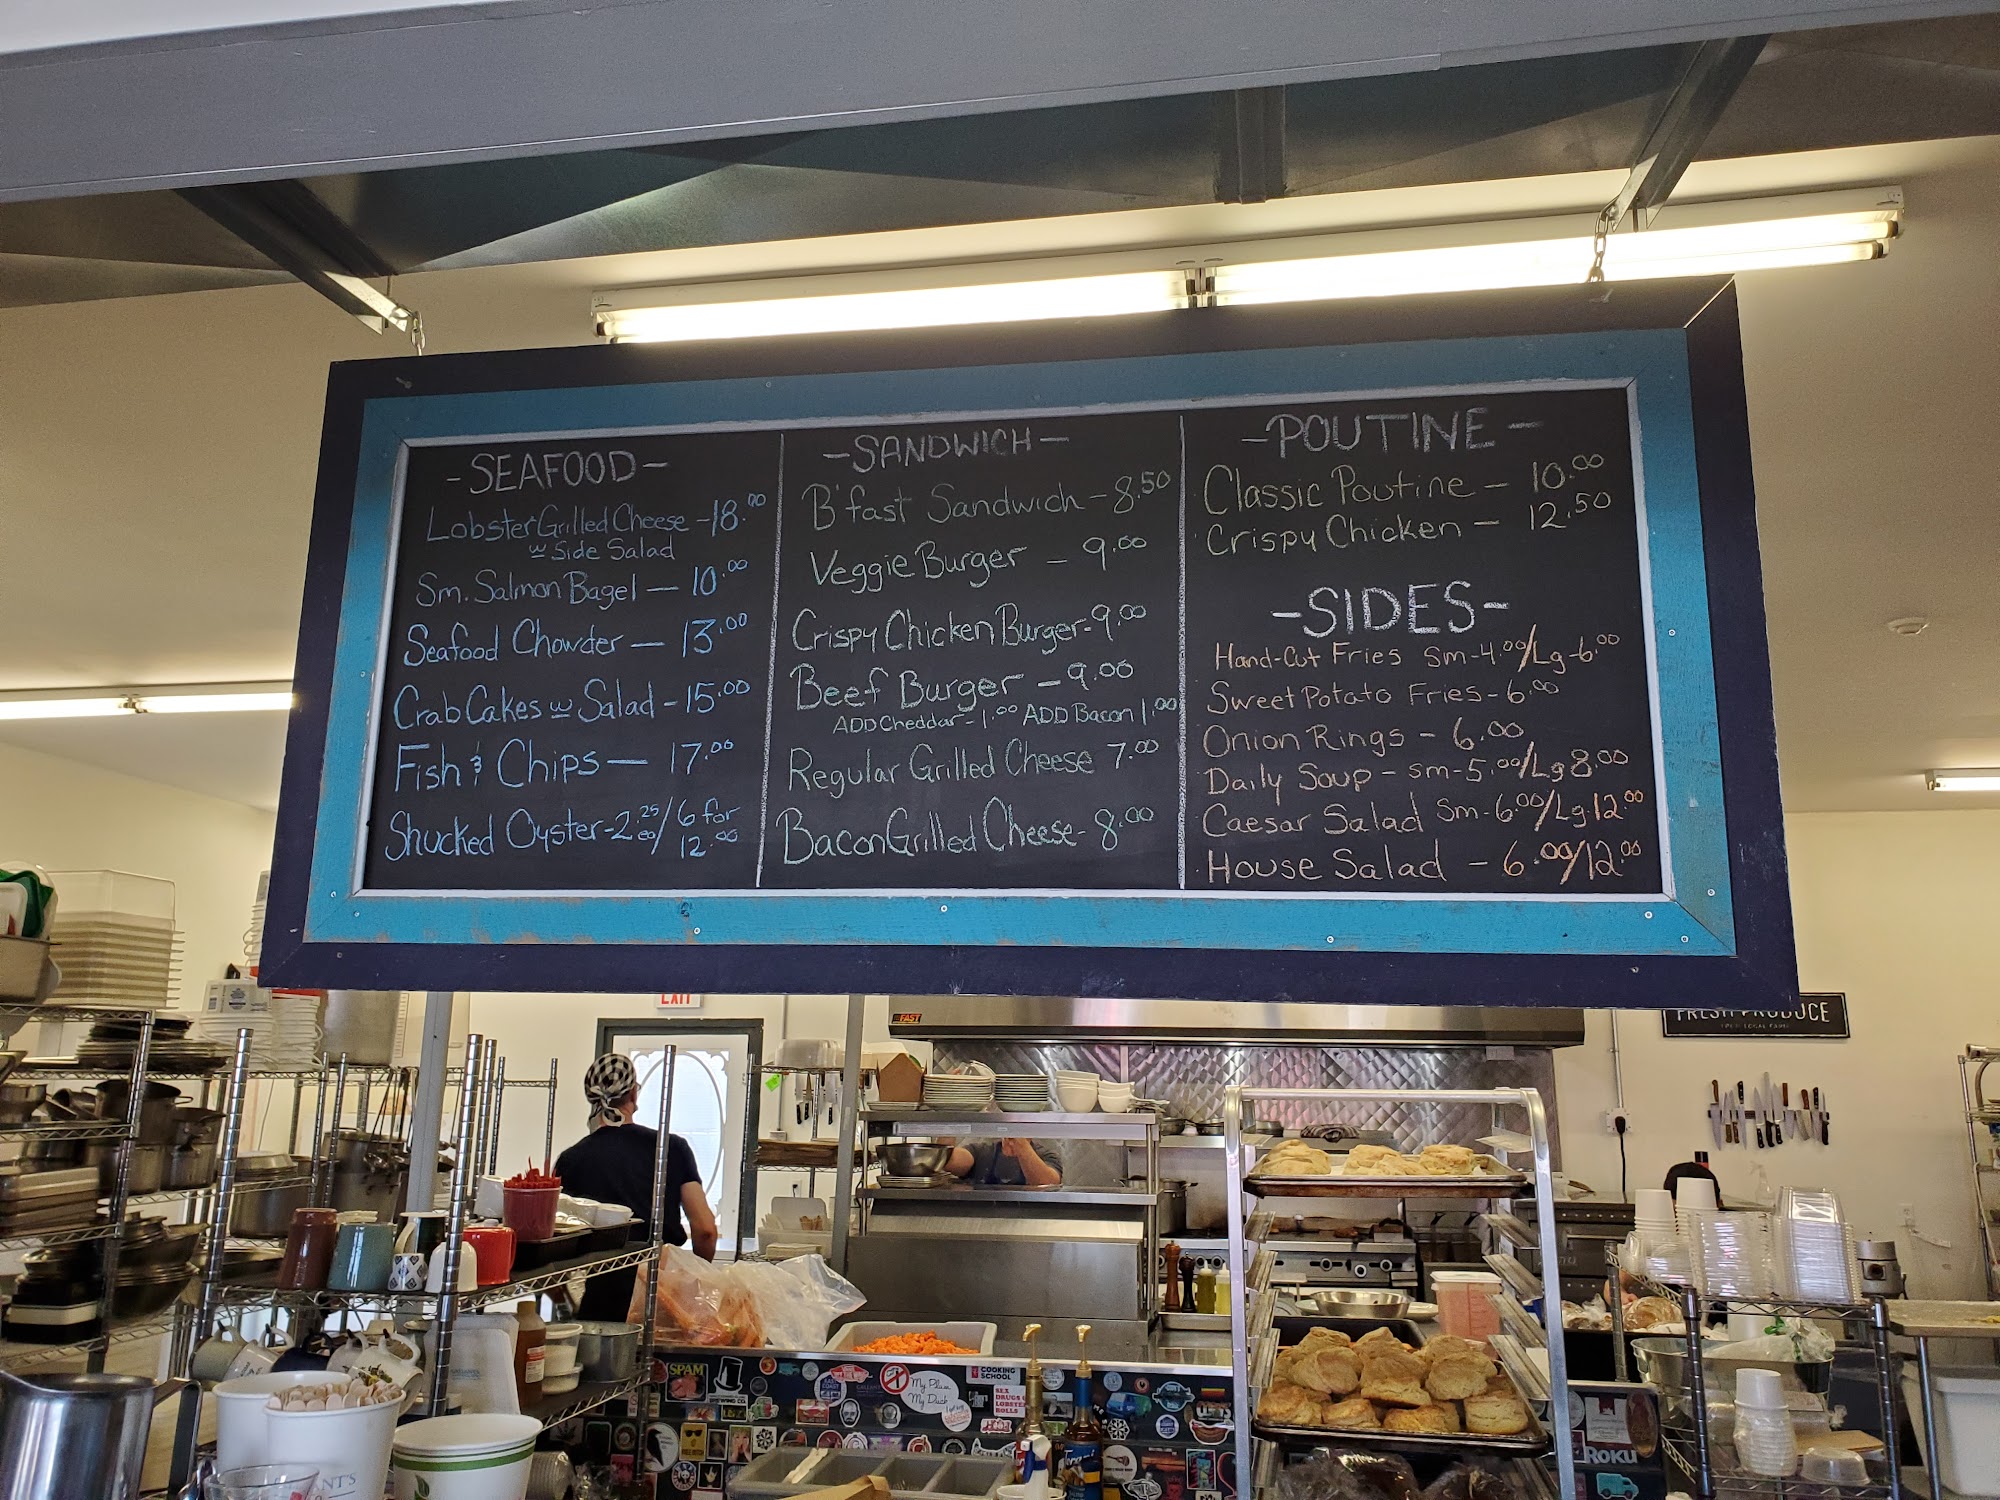 -SEAFOOD-
Lobster Grilled Cheese -18.00
w Side Salad
Sm. Salmon Bagel — 10.00
Seafood Chowder — 13.00
Crab Cakes w Salad - 15.00
Fish & Chips — 17.00
Shucked Oyster - 2.25 ea/ 6 for 12.00
-SANDWICH-
B'fast Sandwich - 8.50
Veggie Burger - 9.00
Crispy Chicken Burger - 9.00
Beef Burger - 9.00
ADD Cheddar - 1.00 ADD Bacon 1.00
Regular Grilled Cheese 7.00
Bacon Grilled Cheese - 8.00
-POUTINE-
Classic Poutine - 10.00
Crispy Chicken - 12.50
-SIDES-
Hand-Cut Fries Sm-4.00/Lg-6.00
Sweet Potato Fries - 6.00
Onion Rings - 6.00
Daily Soup - Sm-5.00/Lg 8.00
Caesar Salad Sm-6.00/Lg.12.00
House Salad - 6.00/12.00
EXIT
FAST
FRESH PRODUCE
SPAM
COOKING SCHOOL
My Place
My Duck
SEX
DRUGS
LOBSTER
ROLLS
ROKU